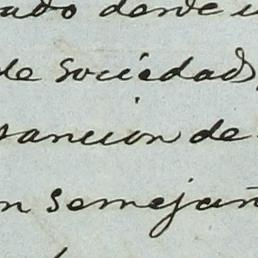 desde
de sociedad,
sancion de
semejan